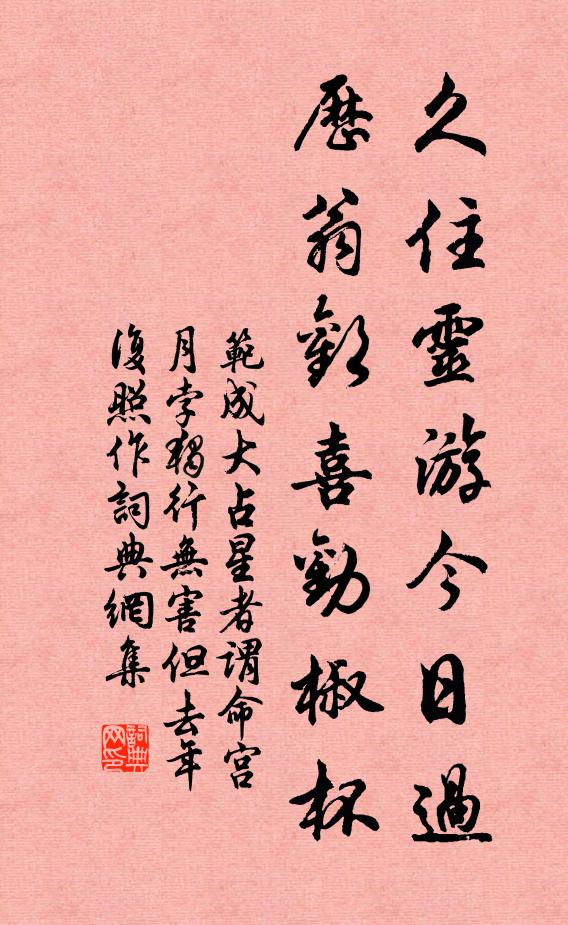 久住靈游今日過
歷翁歡喜勸椒杯
範成大占星者謂命宮
月孛獨行無害但去年
復照作詞典網集
詞典
网印